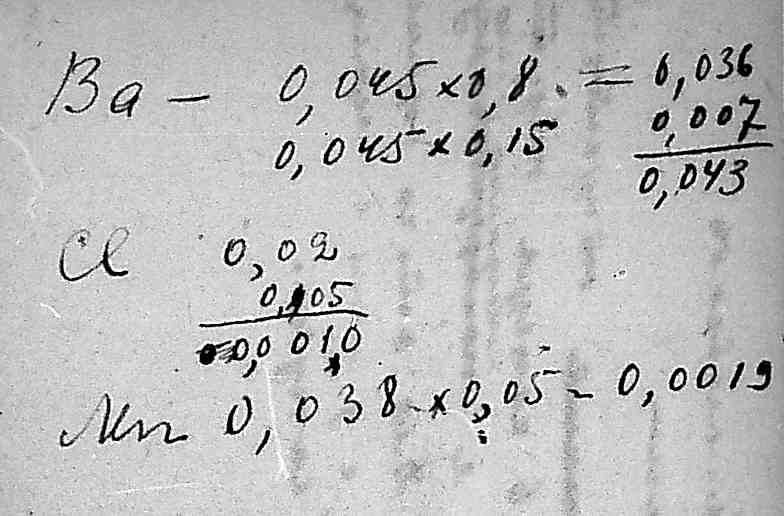 Ba – 0,045 x 0,8 = 0,036
0,045 x 0,15 0,007
0,043
Cl 0,02
0,05
0,0010
0,038 x 0,05 – 0,0019